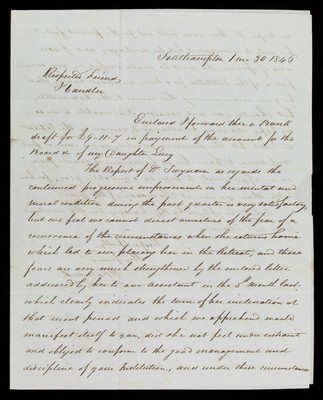 Southampton 1 mo 30 1846
Respected Friend,
Candler
Enclosed I forward thee a Bank
draft for 29.11.7 in payment of the account for the
Board &c of my Daughter Lucy
The Report of Dr Thurnam as regards the
continued progressive improvement in her mental and
moral condition during the past quarter is very satisfactory,
but we feel we cannot divest ourselves of the fear of a
recurrence of the circumstances when she returns home
which led to our placing her in the Retreat, and those
fears are very much strengthened by the enclosed letter
addressed by her to our assistant in the 8th Month last,
which clearly indicates the turn of her inclination at
that recent period and which we apprehend would
manifest itself to you, did she not feel under restraint
and obliged to conform to the good management and
discipline of your Institution, and under these circumstances